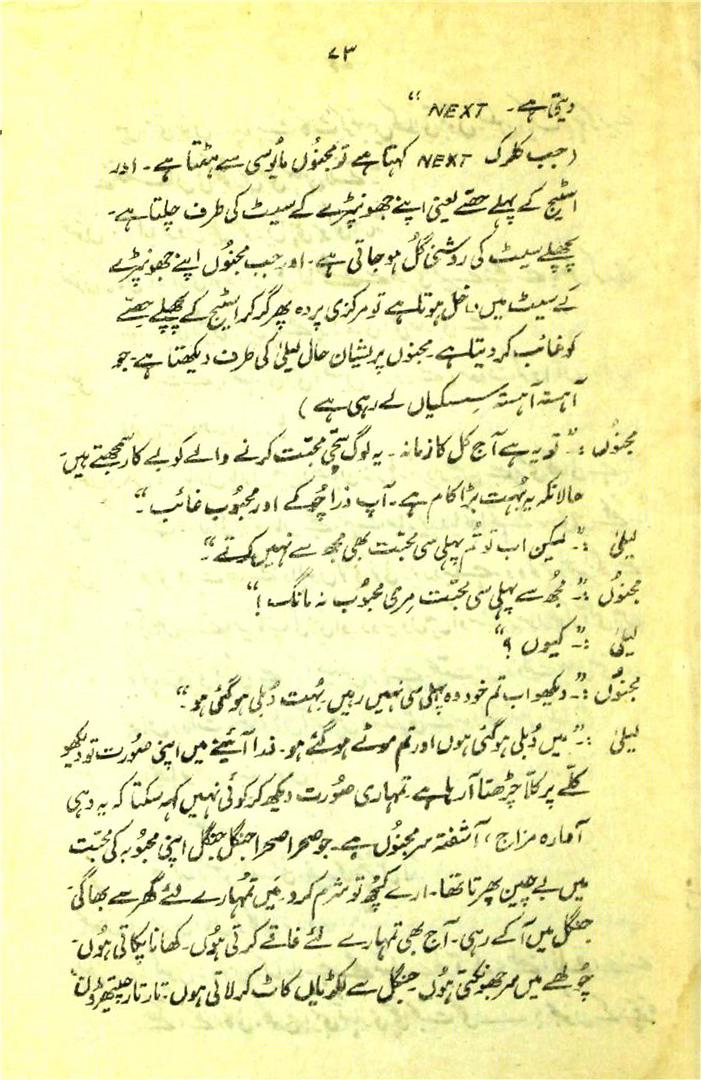 ۷۳
دیتی ہے۔ NEXT “
(جب کلرک NEXT کہتا ہے تو مجنوُں مایُوسی سے ہٹتا ہے۔ اور
اسٹیج کے پہلے حصّے یعنی اپنے جھونپڑے کے سیٹ کی طرف چلتا ہے۔
پچھلے سیٹ کی روشنی گُل ہو جاتی ہے۔ اور جب مجنوُں اپنے جھونپڑے
کے سیٹ میں داخل ہوتا ہے تو مرکزی پردہ پھر گر کر اسٹیج کے پچھلے حِصّے
کو غائب کر دیتا ہے۔ مجنوں پریشان حال لیلیٰ کی طرف دیکھتا ہے۔ جو
آہستہ آہستہ سِسکیاں لے رہی ہے )
مجنوُں :۔” تو یہ ہے آج کل کا زمانہ ۔ یہ لوگ سچّی محبّت کرنے والے کو بے کار سمجھتے ہیں۔
حالانکہ یہ بُہت بڑا کام ہے۔ آپ ذرا چُوکے اور محبُوب غائب ۔“
لیلیٰ :۔” لیکن اب تو تُم پہلی سی محبّت بھی مجھ سے نہیں کرتے ۔“
مجنوُں :۔” مجُھ سے پہلی سی محبّت مِری محبُوب نہ مانگ !“
لیلیٰ :۔” کیوں ؟“
مجنوُں :۔” دیکھو اب تم خود وہ پہلی سی نہیں رہیں۔ بُہت دُبلی ہو گئی ہو ۔“
لیلیٰ :۔” میں دُبلی ہو گئی ہوں اور تم موٹے ہو گئے ہو۔ ذرا آئینے میں اپنی صُورت تو دیکھو
کلّے پر کلّا چڑھتا آ رہا ہے۔ تمہاری صُورت دیکھ کر کوئی نہیں کہہ سکتا کہ یہ وہی
آوارہ مزاج ، آشفتہ سر مجنوُں ہے۔ جو صحرا صحرا جنگل جنگل اپنی محبوبہ کی محبّت
میں بے چین پھرتا تھا۔ ارے کچُھ تو شرم کرو۔ مَیں تمُہارے لئے گھر سے بھاگی
جنگل میں آ کے رہی۔ آج بھی تمہارے لئے فاقے کرتی ہوُں۔ کھانا پکاتی ہوُں۔
چوُلھے میں سر جھونکتی ہوُں۔ جنگل سے لکڑیاں کاٹ کر لاتی ہوں۔ تار تار چیتھڑوں